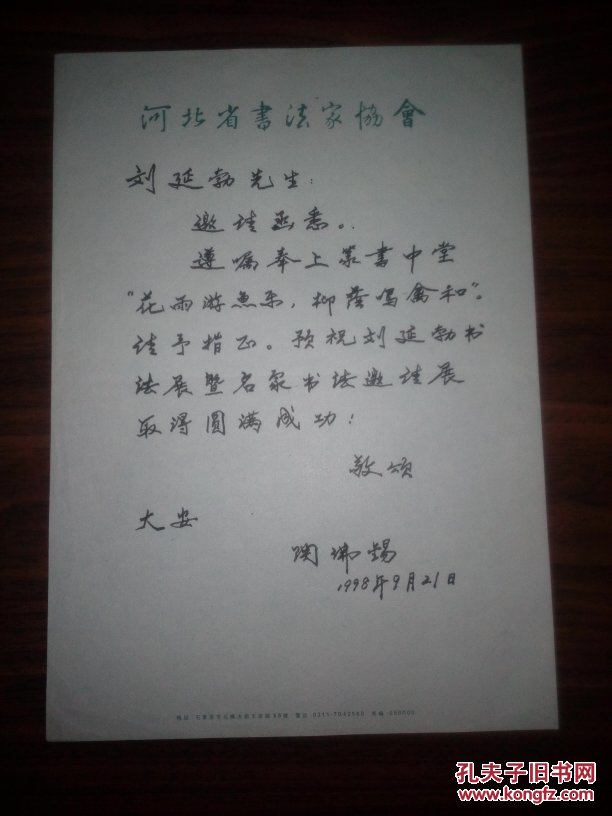 河北省書法家協會
刘延勃先生:
邀请函悉。
遵嘱奉上篆書中堂
“花雨游魚乐,柳蔭鸣禽和”。
请予指正。预祝刘延勃书
法展暨名家书法邀请展
取得圆满成功!
敬颂
大安
陶佛錫
1998年9月21日
0311-7042540
050000
孔夫子旧书网
www.kongfz.com